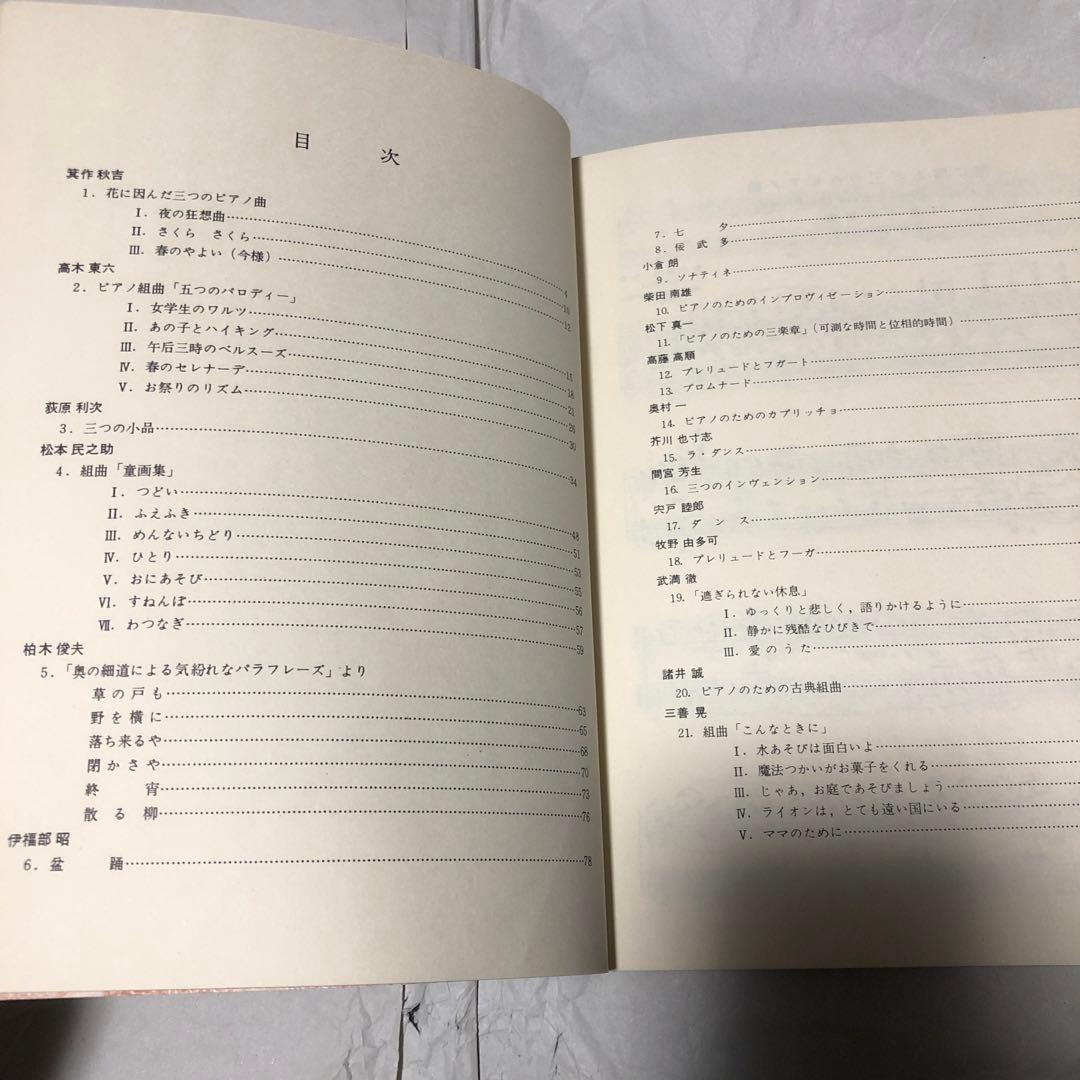 目 次
箕作 秋吉
1. 花に因んだ三つのピアノ曲
I. 夜の狂想曲………4
II. さくら さくら………10
III. 春のやよい（今様）………12
高木 東六
2. ピアノ組曲「五つのパロディー」
I. 女学生のワルツ………15
II. あの子とハイキング………18
III. 午后三時のベルスーズ………21
IV. 春のセレナーデ………26
V. お祭りのリズム………30
荻原 利次
3. 三つの小品………34
松本 民之助
4. 組曲「童画集」
I. つどい………48
II. ふえふき………51
III. めんないちどり………53
IV. ひとり………55
V. おにあそび………56
VI. すねんぼ………57
VII. わつなぎ………59
柏木 俊夫
5.「奥の細道による気紛れなパラフレーズ」より
草の戸も………63
野を横に………65
落ち来るや………68
閉かさや………70
終 宵………73
散る柳………76
伊福部 昭
6. 盆 踊………78
7. 七 夕………
8. 佞武多………
小倉 朗
9. ソナティネ………
柴田 南雄
10. ピアノのためのインプロヴィゼーション………
松下 真一
11.「ピアノのための三楽章」（可測な時間と位相的時間）
高藤 高順
12. プレリュードとフガート………
13. プロムナード………
奥村 一
14. ピアノのためのカプリッチョ………
芥川 也寸志
15. ラ・ダンス………
間宮 芳生
16. 三つのインヴェンション………
宍戸 睦郎
17. ダンス………
牧野 由多可
18. プレリュードとフーガ………
武満 徹
19.「遮ぎられない休息」
I. ゆっくりと悲しく，語りかけるように………
II. 静かに残酷なひびきで………
III. 愛のうた………
諸井 誠
20. ピアノのための古典組曲………
三善 晃
21. 組曲「こんなときに」
I. 水あそびは面白いよ………
II. 魔法つかいがお菓子をくれる………
III. じゃあ，お庭であそびましょう………
IV. ライオンは，とても遠い国にいる………
V. ママのために………